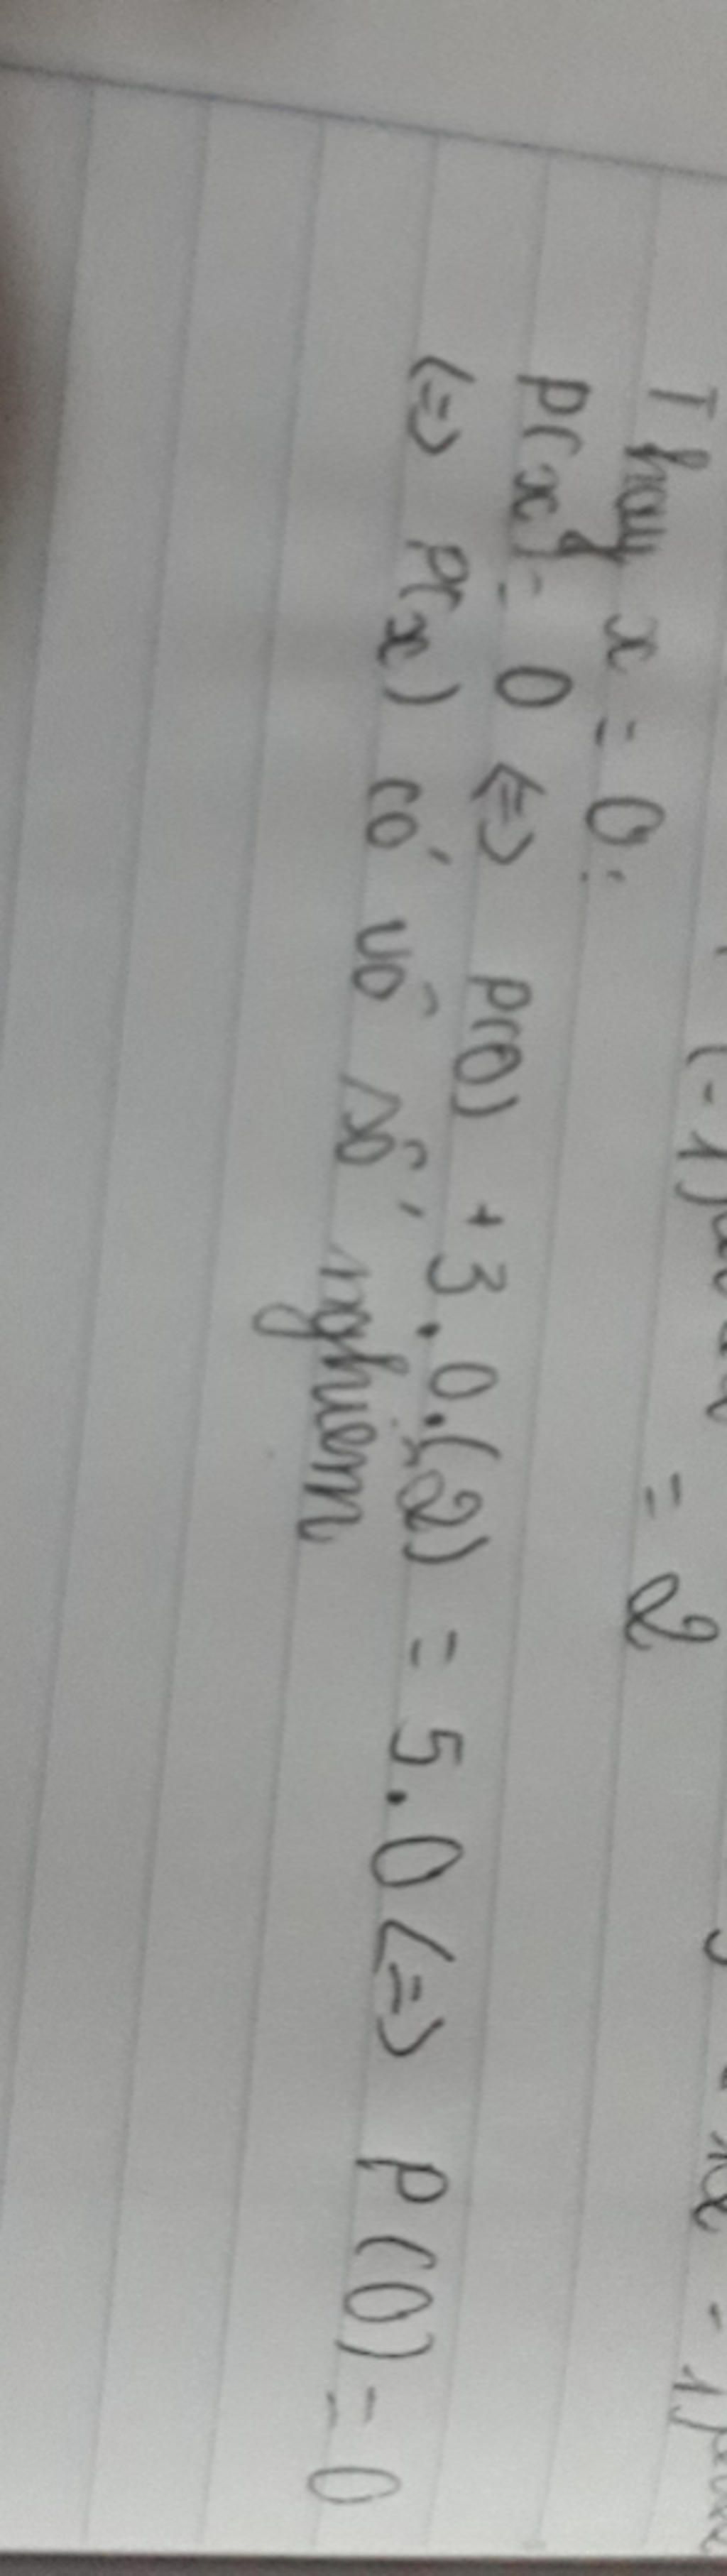 (-1) = 2 - 1
Thay x = 0:
P(x) = 0 <=> P(0) + 3.0.(2) = 5.0 <=> P(0) = 0
<=> P(x) có vô số nghiệm